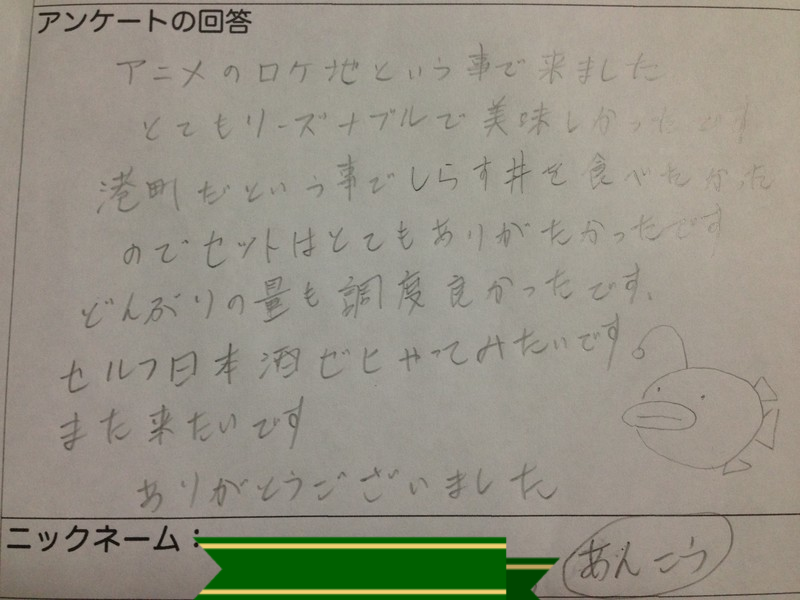 アンケートの回答
アニメのロケ地という事で来ました
とてもリーズナブルで美味しかったです
港町だという事でしらす丼を食べたかった
のでセットはとてもありがたかったです
どんぶりの量も調度良かったです、
セルフ日本酒ゼヒやってみたいです
また来たいです
ありがとうございました
ニックネーム：
あんこう